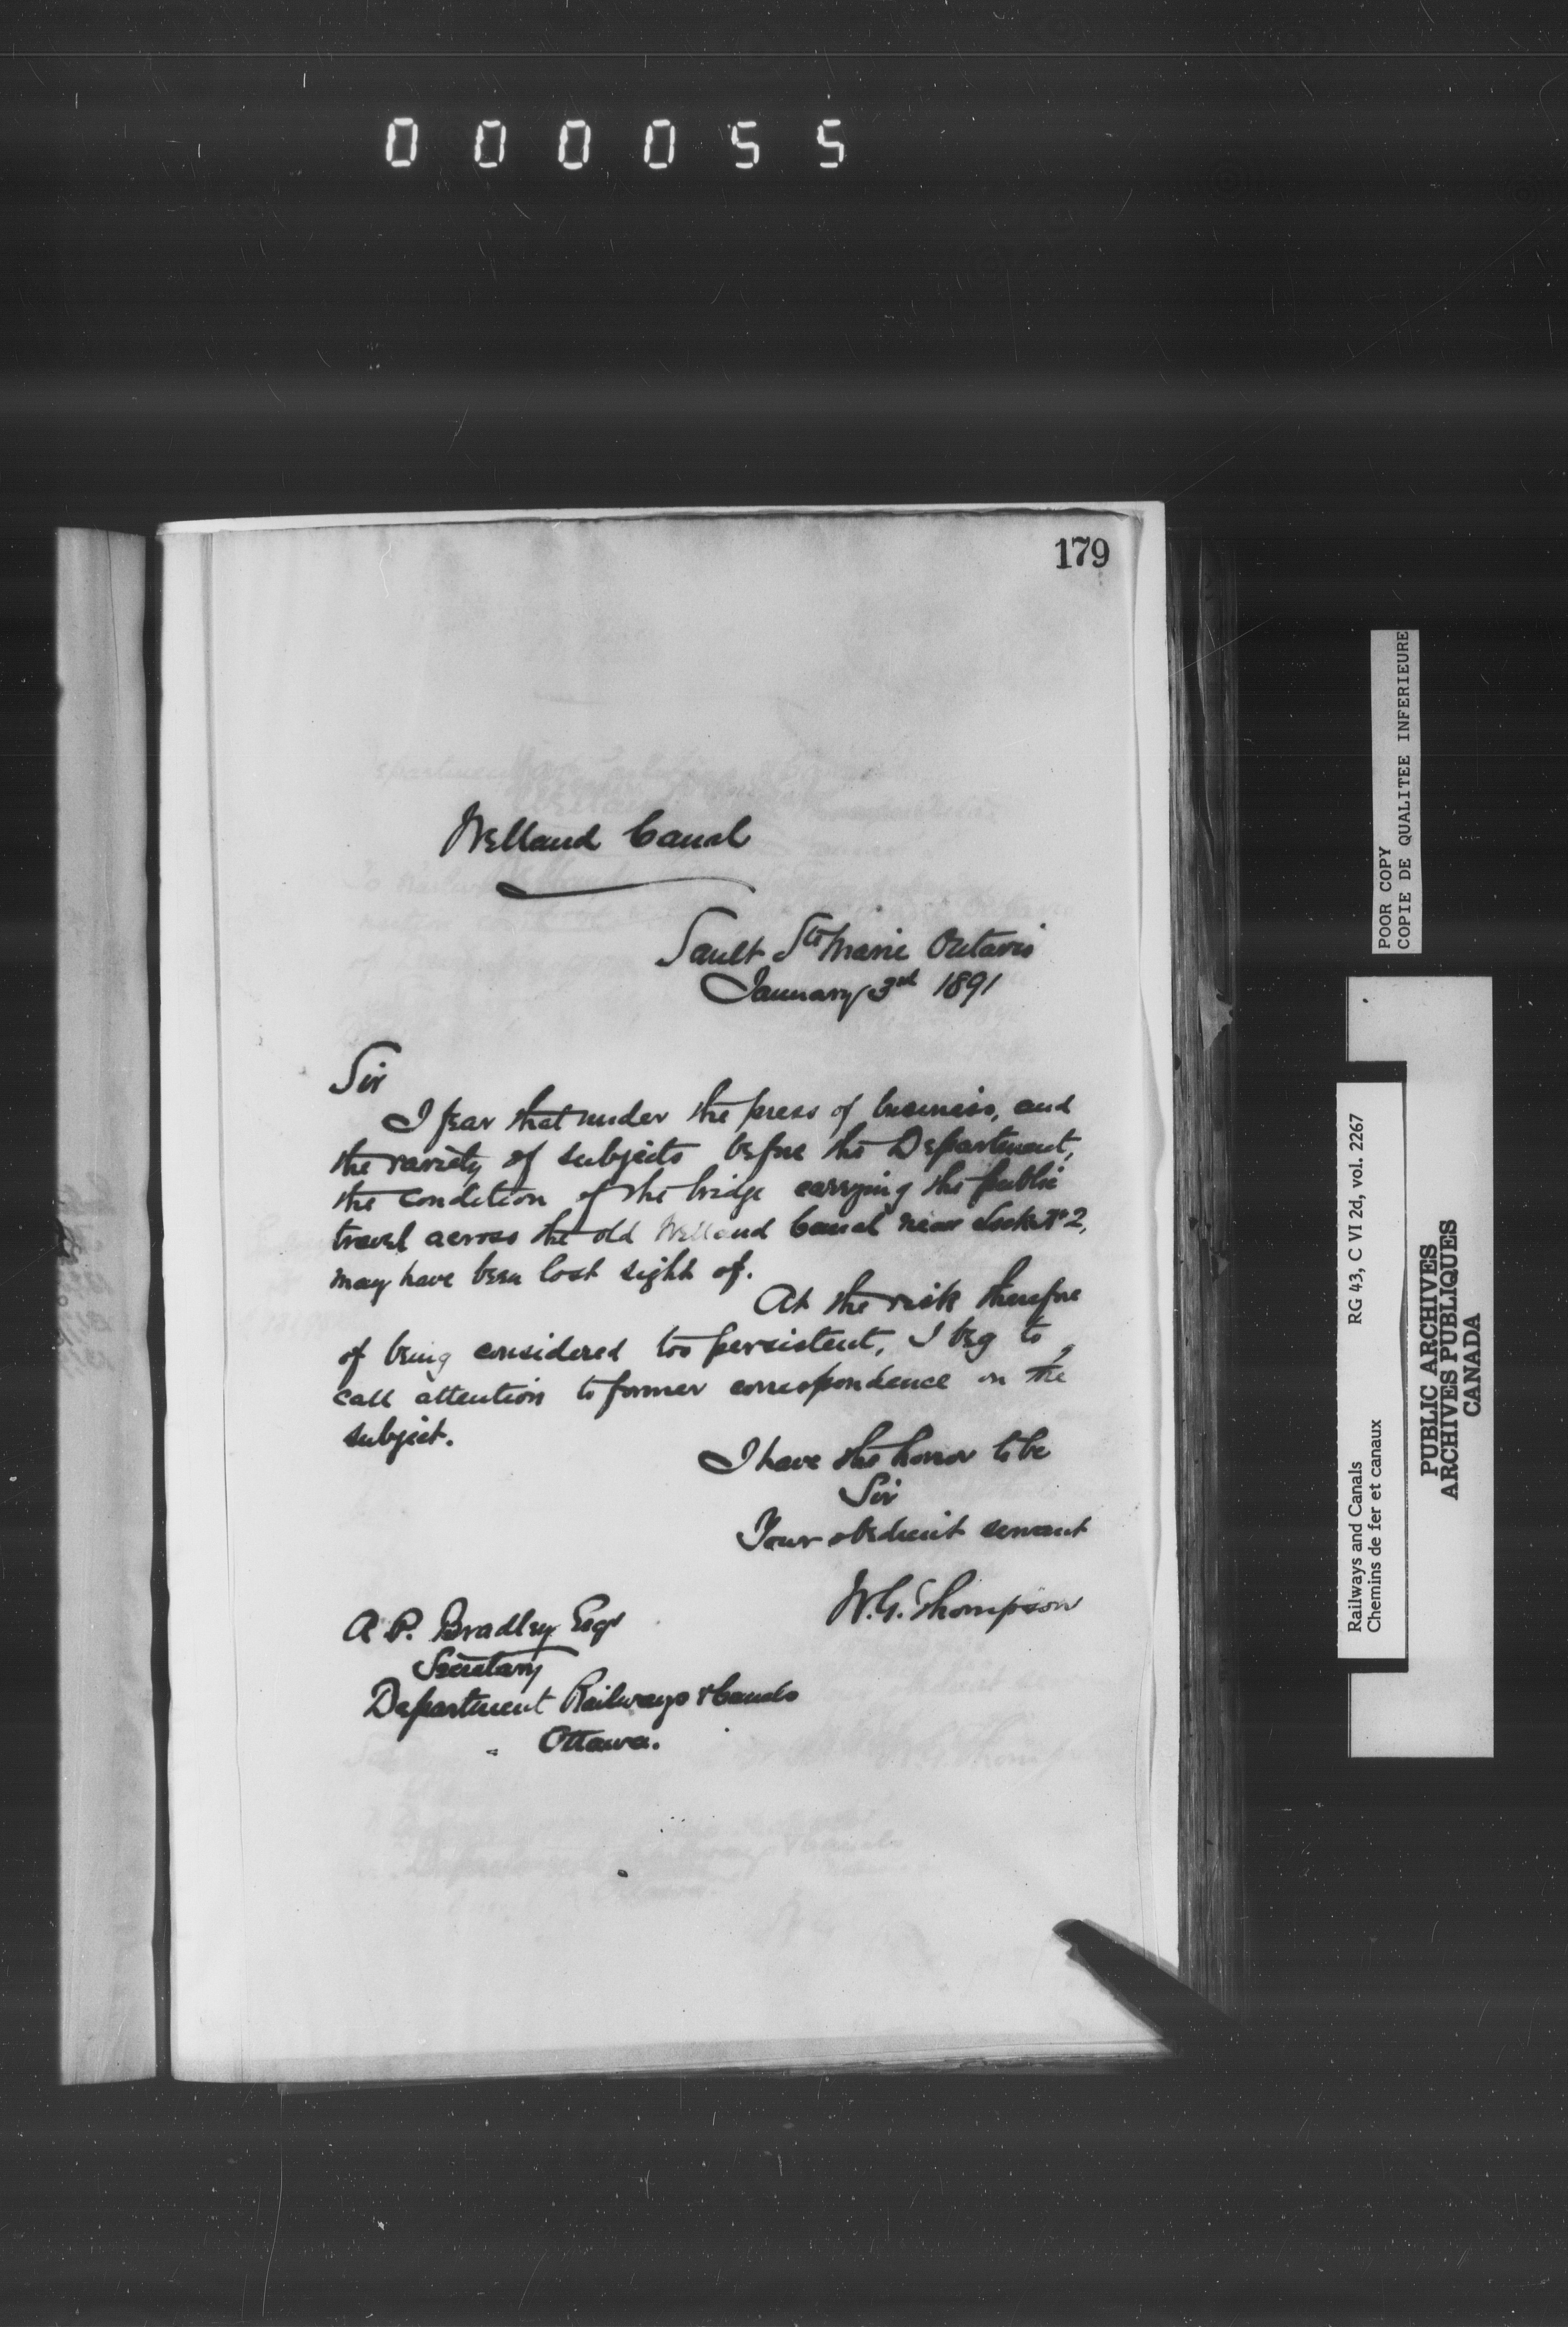 000055
179
Welland Canal
Sault Ste Marie Ontario
January 3rd 1891
Sir
I fear that under the press of business, and
the variety of subjects before the Department,
the condition of the bridge carrying the public
travel across the old Welland Canal near Lock No 2,
may have been lost sight of.
At the risk therefore
of being considered too persistent, I beg to
call attention to former correspondence on the
subject.
I have the honor to be
Sir
Your obedient servant
W.G. Thompson
A. P. Bradley Esqr
Secretary
Department Railways & Canals
Ottawa.
POOR COPY
COPIE DE QUALITEE INFERIEURE
RG 43, C VI 2d, vol. 2267
Railways and Canals
Chemins de fer et canaux
PUBLIC ARCHIVES
ARCHIVES PUBLIQUES
CANADA